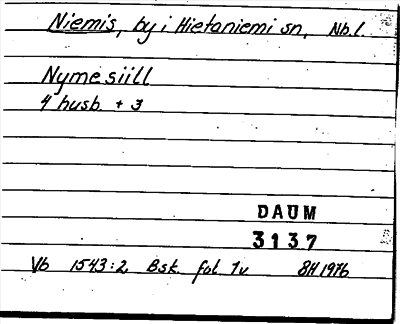 Niemis, by i Hietaniemi sn, Nb.l.
Nymesiill
4 husb. + 3
DAUM
3137
Vb 1543:2 Bsk. fol. 1v BH 1976